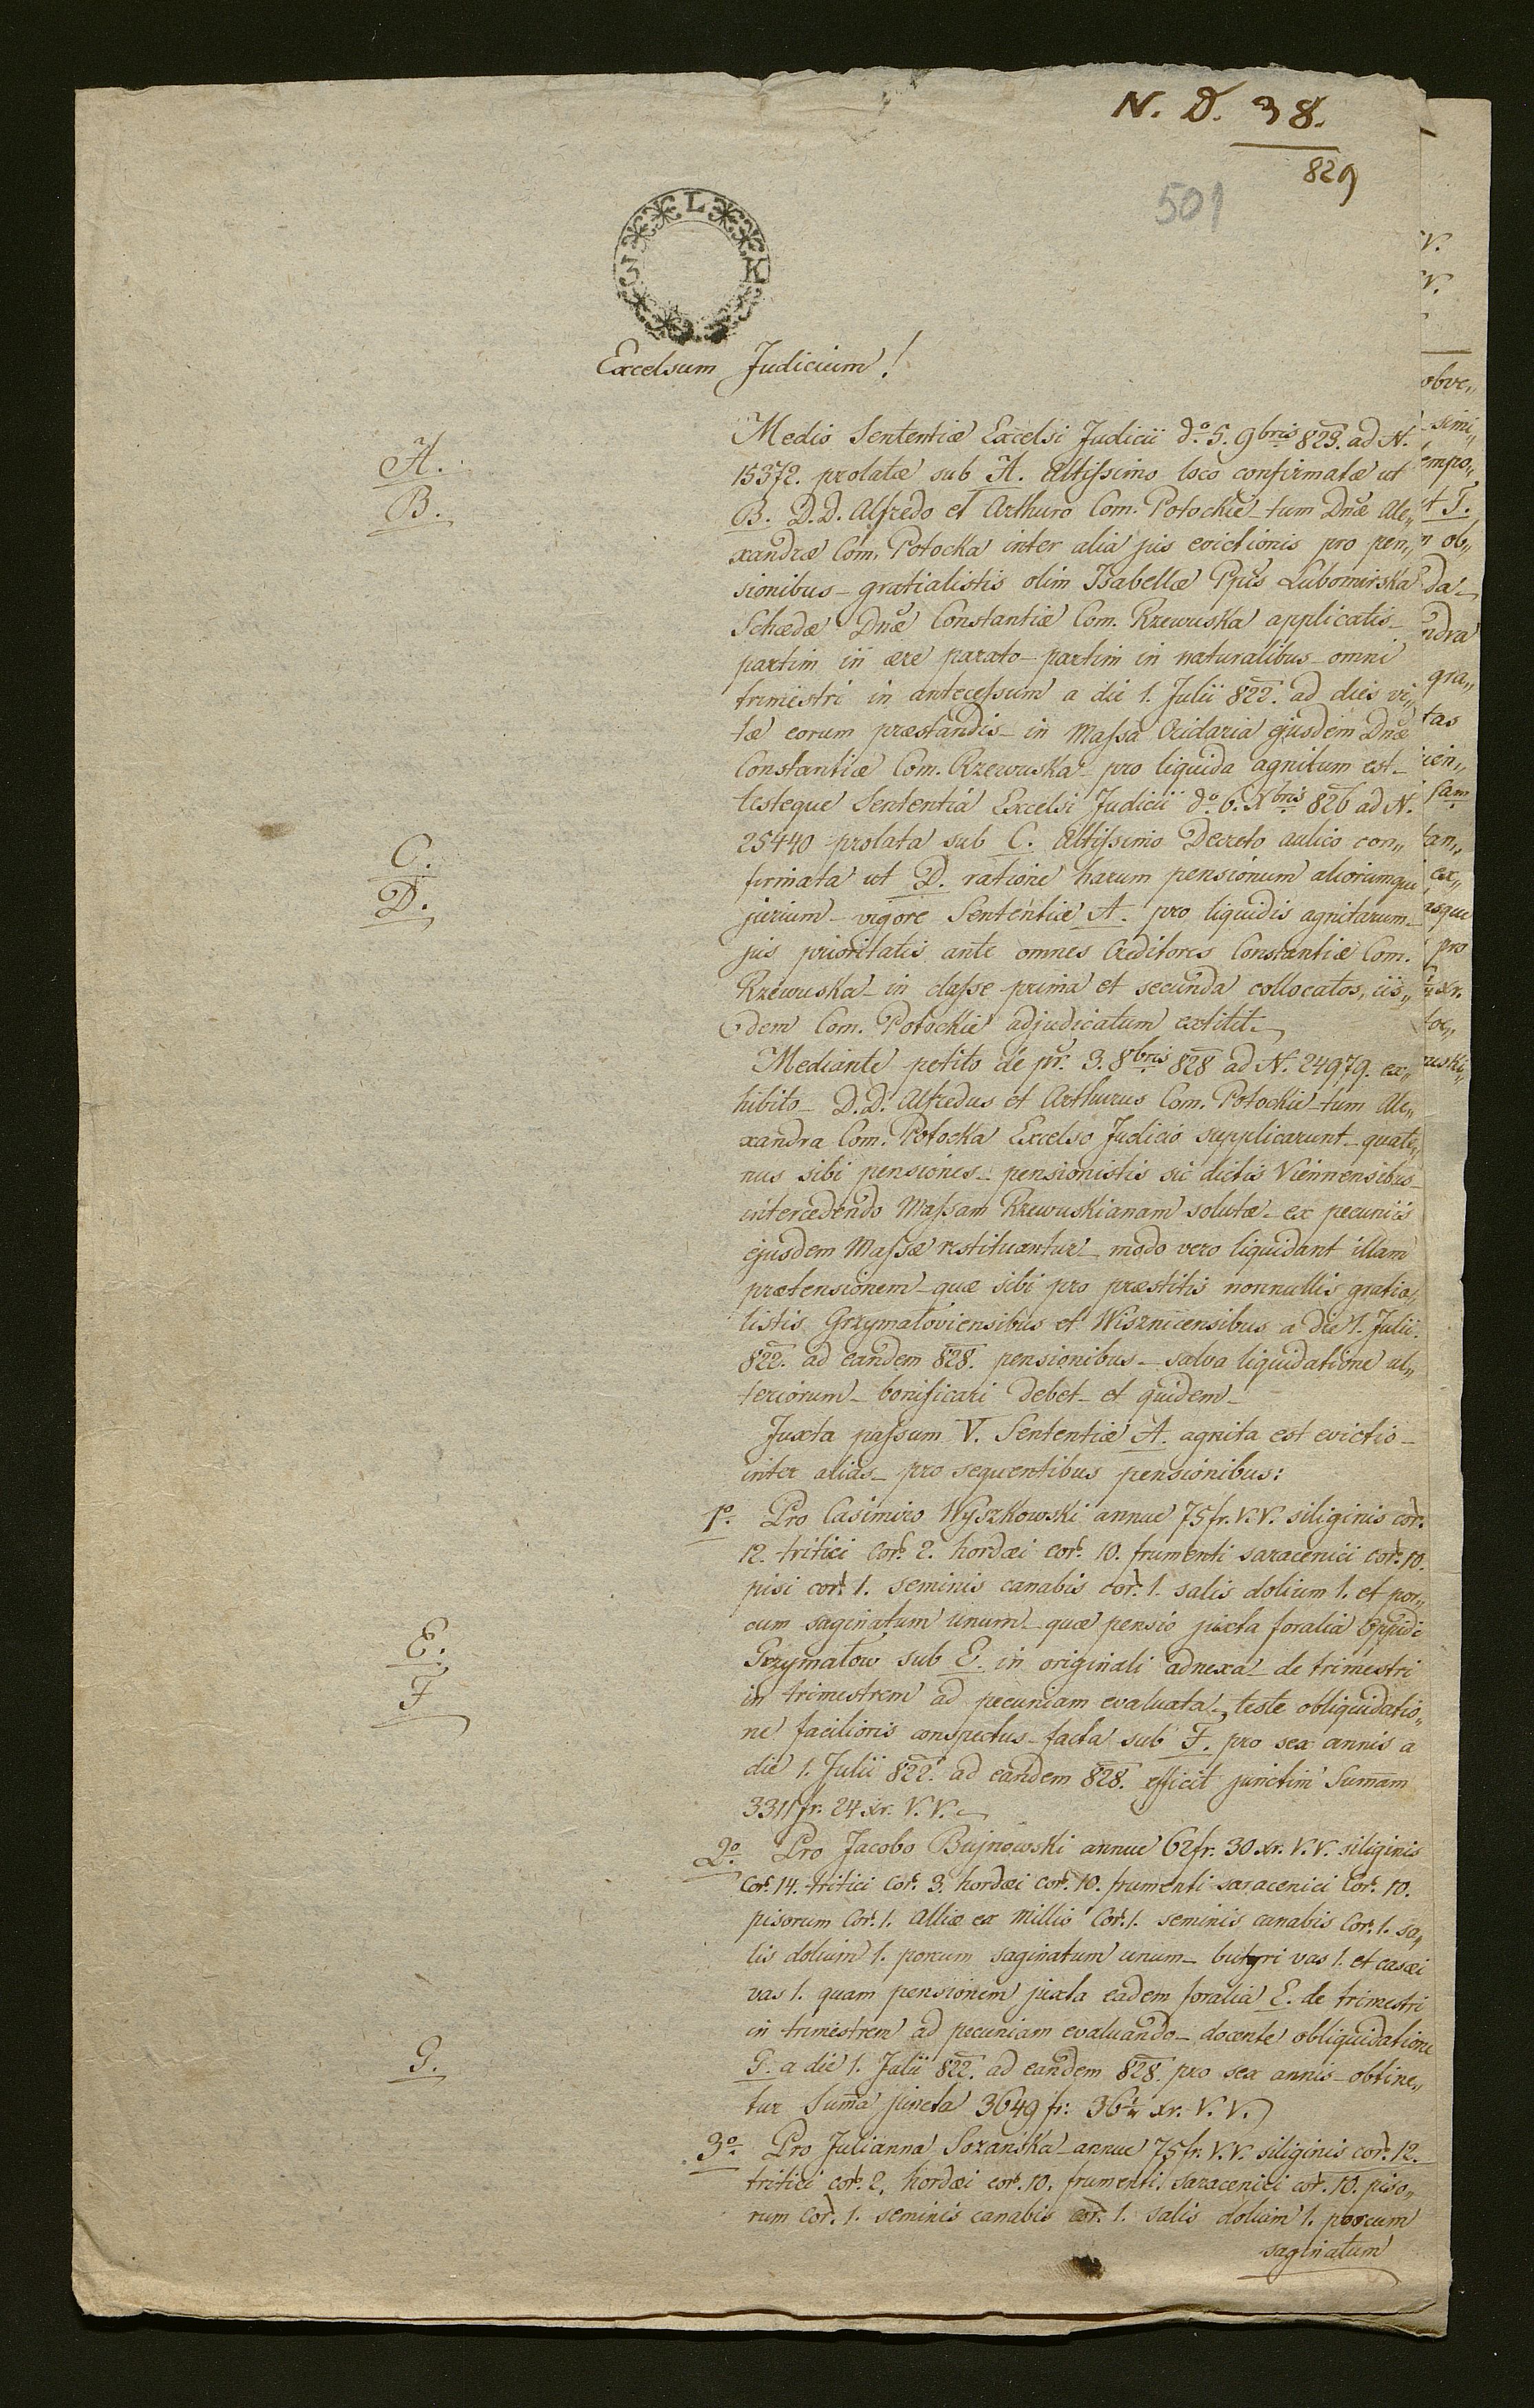 N. D. 38.
829
501
3 L K
Excelsum Judicium!
Medio Sententiæ Excelsi Judicii d° 5. 9bris 823. ad N.
A.
15372. prolatæ sub A. Altissimo loco confirmatæ ut
B.
B. D.D. Alfredo et Arthuro Com. Potockie tum Dnæ Ale„
xandræ Com. Potocka inter alia jus evictionis pro pen„
sionibus gratialistis olim Isabellæ Ppis Lubomirska
Schedæ Dnæ Constantiæ Com. Rzewuska applicatis
partim in ære parato partim in naturalibus omni
trimestri in antecessum a die 1. Julii 822. ad dies vi„
tæ eorum præstandis in Massa Cridaria ejusdem Dnæ
Constantiæ Com. Rzewuska pro liquida agnitum est
testeque Sententia Excelsi Judicii d° 6. Xbris 826 ad N.
25440 prolata sub C. Altissimo Decreto aulico con„
C.
firmata ut D. ratione harum pensionum aliorumque
D.
jurium vigore Sententiæ A. pro liquidis agnitarum
jus prioritatis ante omnes Creditores Constantiæ Com.
Rzewuska in classe prima et secunda collocatos, iis„
dem Com. Potockie adjudicatum extitit.
Mediante petito de pr. 3. 8bris 828 ad N. 24979. ex„
hibito D.D. Alfredus et Arthurus Com. Potockie tum Ale„
xandra Com. Potocka Excelso Judicio supplicarunt quate„
nus sibi pensiones pensionistis sic dictis Viennensibus
intercedendo Massam Rzewuskianam solutæ ex pecuniis
ejusdem Massæ restituantur modo vero liquidant illam
prætensionem quæ sibi pro præstitis nonnullis gratia„
listis Grzymałoviensibus et Wisznicensibus a die 1. Julii
822. ad eandem 828. pensionibus salva liquidatione ul„
teriorum bonificari debet et quidem
Juxta passum V. Sententiæ A. agnita est evictio
inter alias pro sequentibus pensionibus:
1° Pro Casimiro Wyszkowski annue 75 fr. V.V. siliginis cor.
12. tritici Cor. 2. hordæi cor. 10. frumenti saracenici cor. 10.
pisi cor. 1. seminis canabis cor. 1. salis dolium 1. et por„
cum saginatum unum quæ pensio juxta foralia Oppidi
E.
Grzymałow sub E. in originali adnexa de trimestri
F
in trimestrem ad pecuniam evaluata, teste obliquidatio„
ne facilioris conspectus facta sub F. pro sex annis a
die 1. Julii 822. ad eandem 828. efficit junctim Summam
3311 fr. 24 xr. V.V.
2° Pro Jacobo Bujnowski annue 62 fr. 30 xr. V.V. siliginis
Cor. 14. tritici Cor. 3. hordæi cor. 10. frumenti saracenici Cor. 10.
pisorum Cor. 1. Alliæ ex Millio Cor. 1. seminis canabis Cor. 1. sa„
lis dolium 1. porcum saginatum unum butyri vas 1. et casæi
vas 1. quam pensionem juxta eadem foralia E. de trimestri
in trimestrem ad pecuniam evaluando docente obliquidatione
G.
G. a die 1. Julii 822. ad eandem 828. pro sex annis obtine„
tur Summa juncta 3649 fr. 36 1/4 xr. V.V.
3° Pro Julianna Sozanska annue 75 fr. V.V. siliginis cor. 12.
tritici cor. 2. hordæi cor. 10. frumenti saracenici cor. 10. piso„
rum cor. 1. seminis canabis cor. 1. salis dolium 1. porcum
saginatum